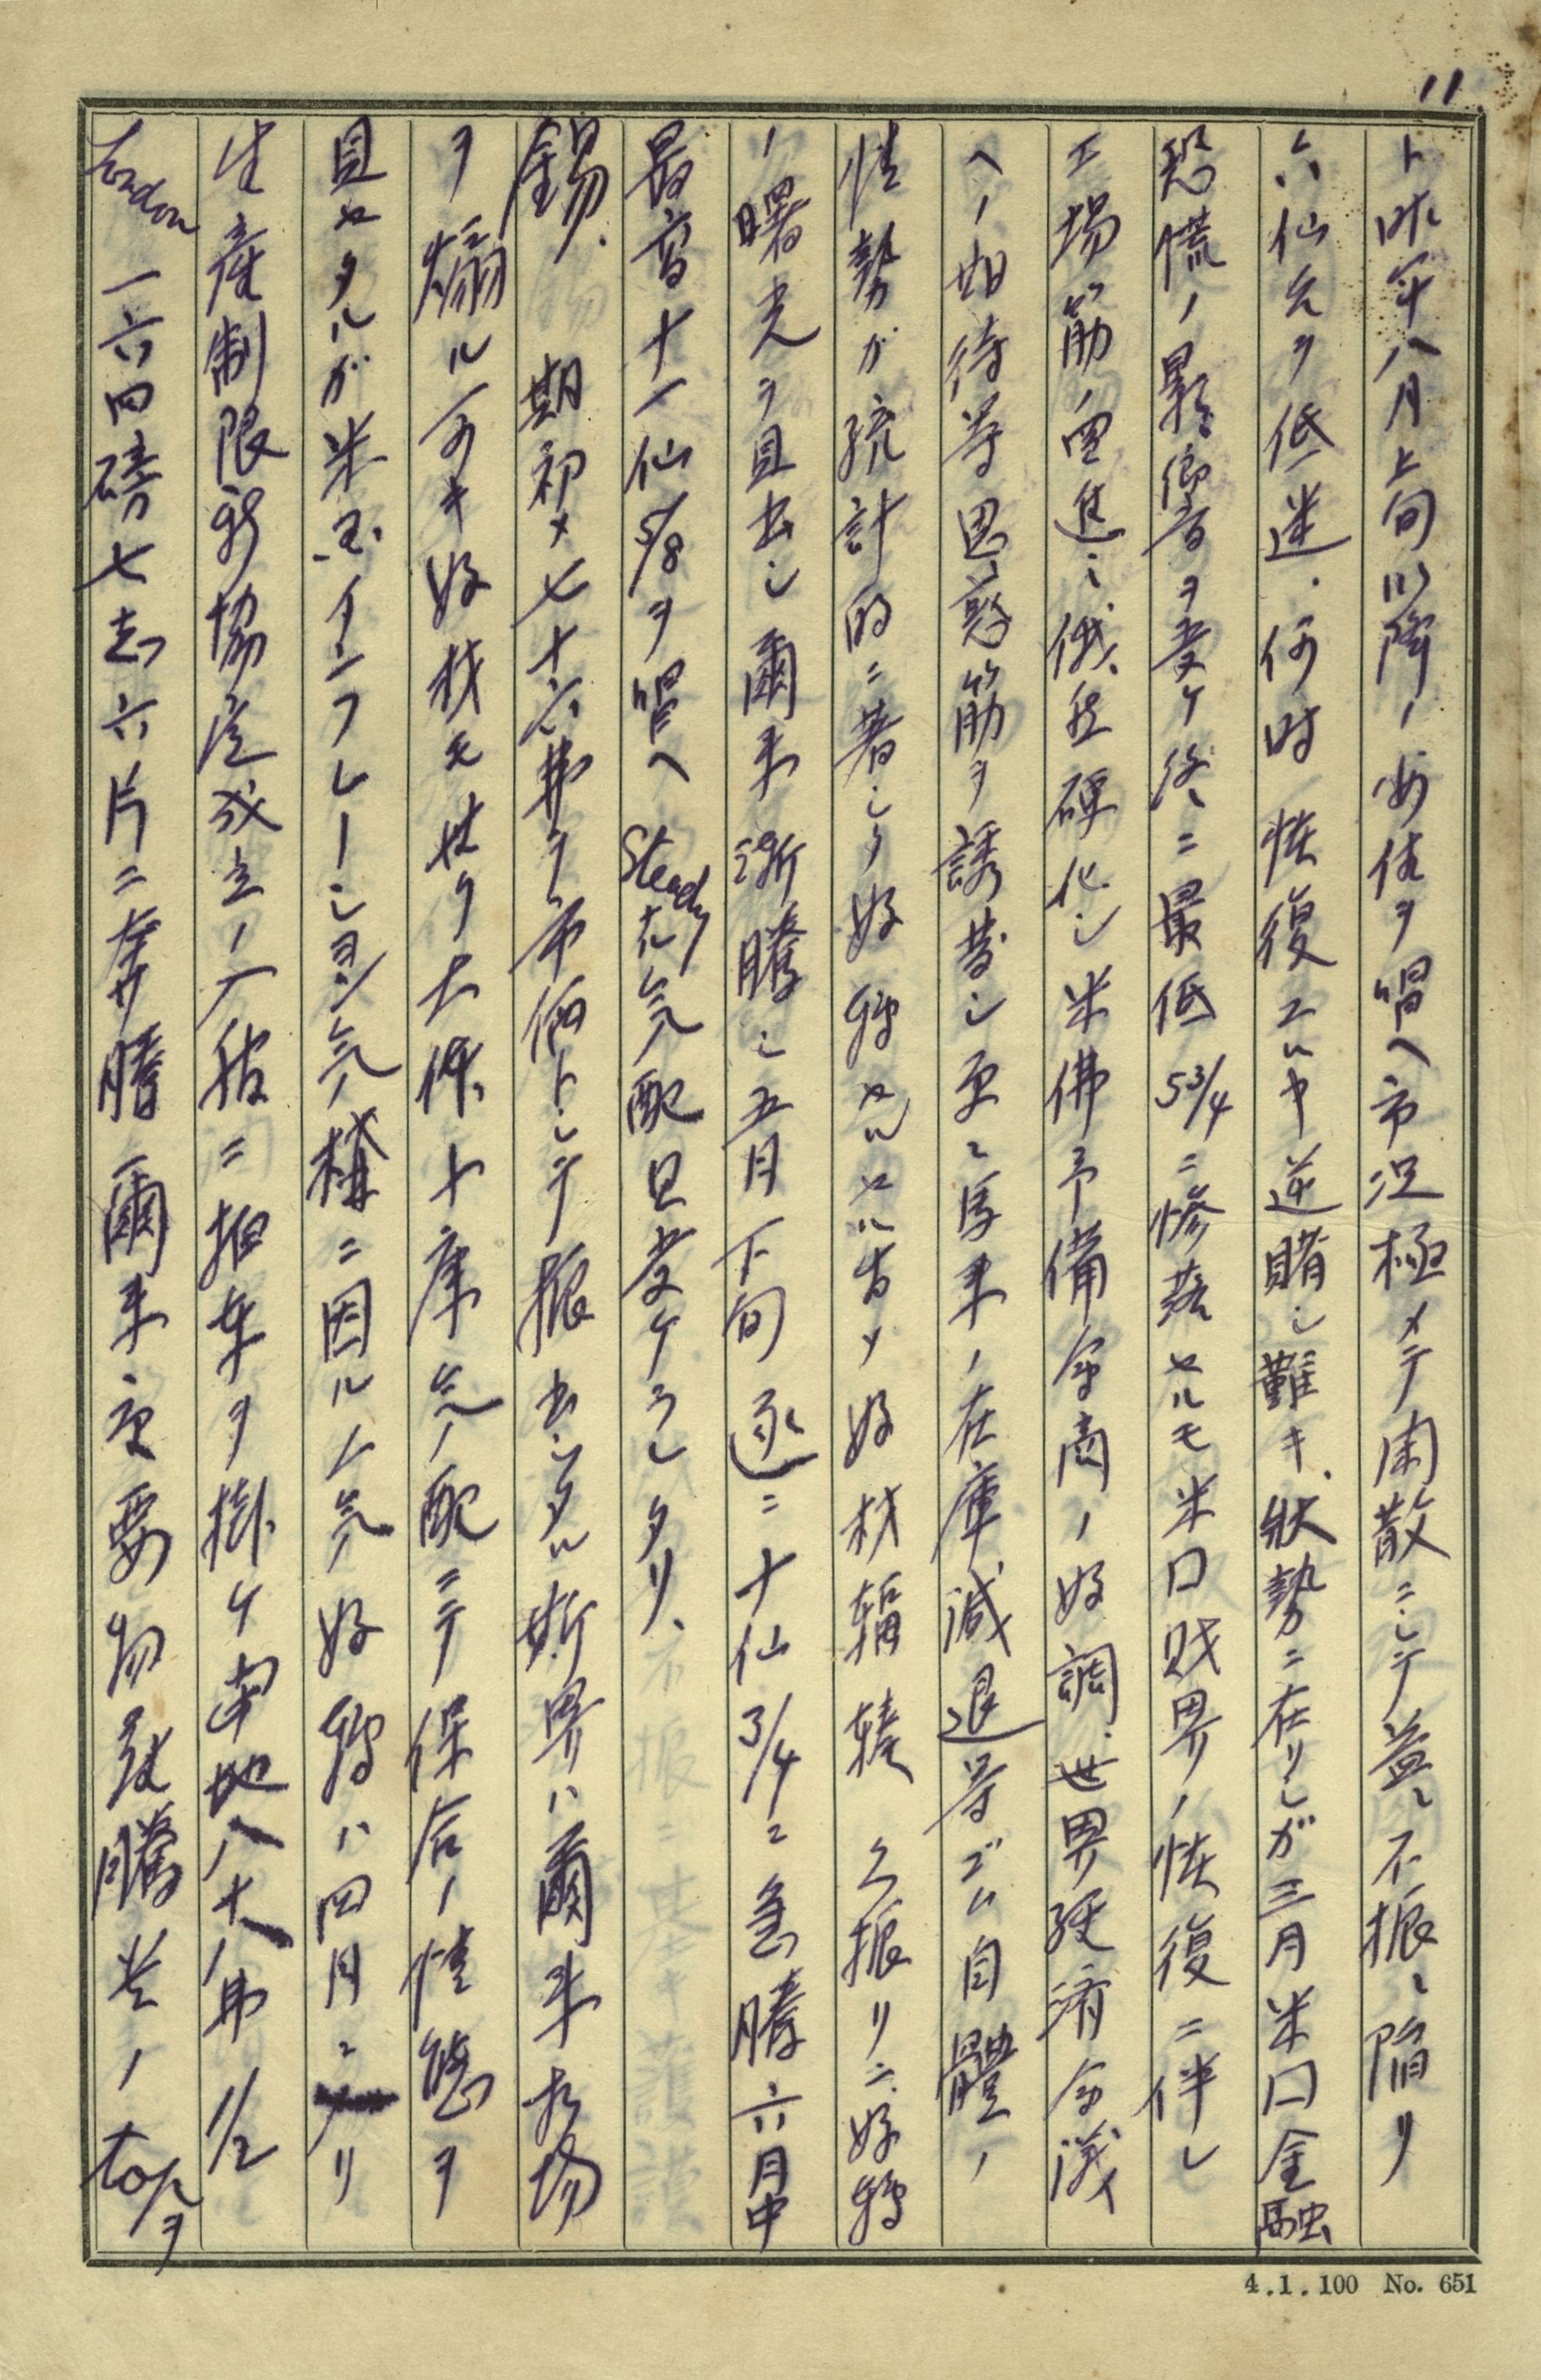 11
ト昨年八月上旬以降ノ安値ヲ唱ヘ市況極メテ閑散ニシテ益々不振ニ陥リ
六仙台ヲ低迷、何時恢復スルヤ逆賭シ難キ狀勢ニ在リシガ三月米囗金融
恐慌ノ影響ヲ受ケ終ニ最低5 3/4ニ惨落セルモ米囗財界ノ恢復ニ伴レ
工場筋ノ買進ミ俄然硬化シ米佛予備會商ノ好調、世界経済会議
ヘノ期待等思惑筋ヲ誘発シ更ニ原来ノ在庫減退等ゴム自體ノ
情勢ガ統計的ニ著シク好轉セル為メ好材輻輳 久振リニ好轉
ノ曙光ヲ見出シ爾来漸騰シ五月下旬遂ニ十仙3/4ニ急騰六月中
最高十一仙5/8ヲ唱ヘSteadyナル気配見受ケラレタリ、
錫、 期初メ七十六弗ヲ市価トシテ振出シタル斯界ハ爾来相場
ヲ煽ル可キ好材モ無ク大体、十席気配ニテ保合ノ情態ヲ
見セタルガ米国インフレーション気構ニ因ル人気好轉ハ四月ニ入リ
生産制限新協定成立ノ入報ニ拍車ヲ掛ケ当地八十八弗1/2
London 一六四磅七志六片ニ奔騰爾来主要物資騰貴ノtopヲ
4.1.100 No. 651